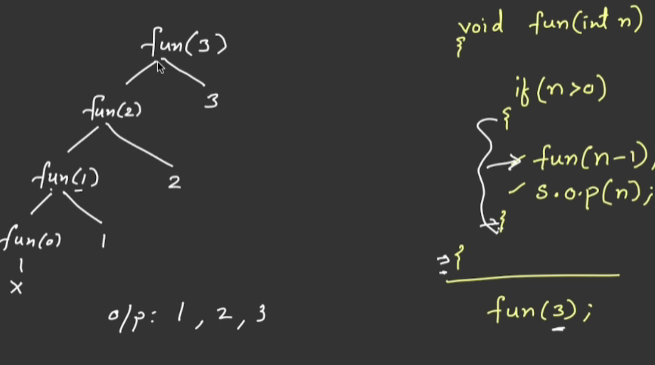 fun(3)
fun(2) 3
fun(1) 2
fun(0) 1
x
o/p: 1, 2, 3
void fun(int n)
{
if(n>0)
{
fun(n-1),
s.o.p(n);
}
}
fun(3);